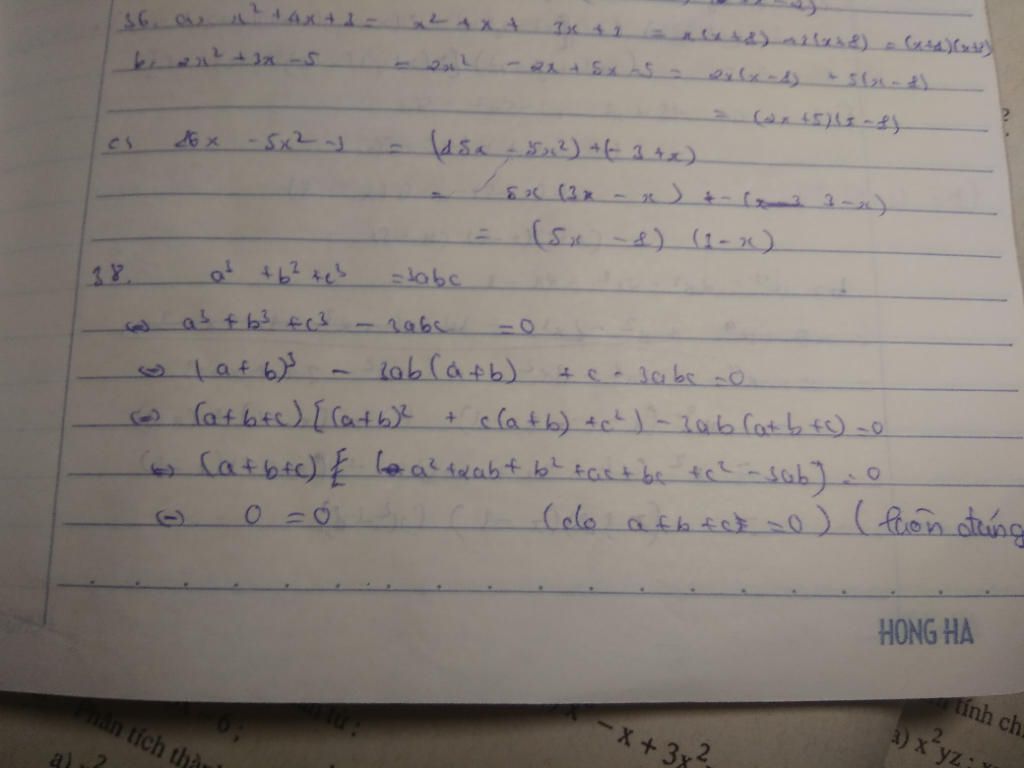 36. a, x² + 4x + 3 = x² + x + 3x + 3 = x(x+1) + 3(x+1) = (x+1)(x+3)
b, 2x² + 3x - 5 = 2x² - 2x + 5x - 5 = 2x(x-1) + 5(x-1)
= (2x+5)(x-1)
c, 16x - 5x² - 3 = (15x - 5x²) + (-3+x)
= 5x (3x - x) + - (3-x)
= (5x - 1) (3-x)
38. a³ + b² + c³ = 3abc
⇔ a³ + b³ + c³ - 3abc = 0
⇔ (a+b)³ - 3ab(a+b) + c - 3abc = 0
⇔ (a+b+c) [(a+b)² + c(a+b) + c²) - 3ab(a+b+c) = 0
⇔ (a+b+c) [ a² + 2ab + b² + ac + bc + c² - 3ab] = 0
⇔ 0 = 0 (do a+b+c = 0) (luôn đúng
HONG HA
- 6 ;
tử ;
- x + 3x²
tính
Phân tích
a) x²yz ;
a)